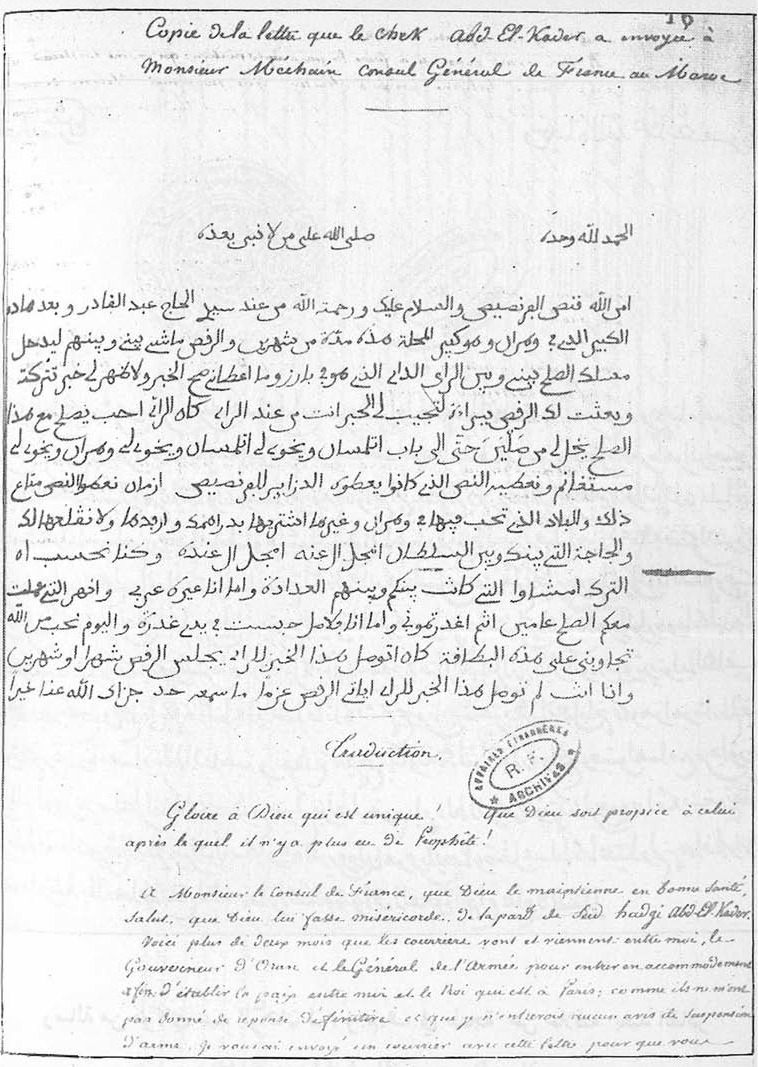 16
Copie de la lettre que le chek Abd-El-Kader a envoyée à
Monsieur Méchain Consul Général de France au Maroc
الحمد لله وحده صلى الله على من لا نبي بعده
امن الله قنص الفرنصيص والسلام عليك ورحمة الله من عند سيد الحاج عبد القادر وبعد هاده
الكبير الدي في وهران وهو كبير المحلة هذه مدة من شهرين والرقص ماشي بيني وبينهم ليدخل
الصلح بيني وبين الراي الذي هو في باريز وما اعطاني صح الخبر ولا ظهر لي خبر
وبعثت لك الرقص ببراة لتجيب لي الخبر انت من عند الراي كان الراي احب يصلح مع هذا
الصلح يخلي من حتى الى باب اتلمسان ويخوي لي اتلمسان ويخوي لي وهران ويخوي لي
مستغانم ونعطيه النص الذي كانوا يعطوه الدزاير للفرنصيص
ذلك والبلاد الذي تحب فيها في وهران وغيرها اشتريها بدراهمك
والحاجة التي بينك وبين السلطان وكنا نحسب ان
الترك امشاوا التي كانت بينكم وبينهم العداوة واما انا غيره عربي
معكم الصلح عامين انتم اغدرتموني واما انا واليوم نحب من الله
تجاوبني على هذه البطاقة كان اتوصل هذا الخبر للراي يجلس الرقص شهرا او شهرين
واذا انت لم توصل هذا الخبر للراي الرقص عزما ما سمعه حد جزاك الله عنا خيرا
Traduction.
AFFAIRES ÉTRANGÈRES
R. F.
ARCHIVES
Gloire à Dieu qui est unique! que Dieu soit propice à celui
après le quel il n'y a plus eu de Prophète!
A Monsieur le Consul de France, que Dieu le maintienne en bonne santé,
salut, que Dieu lui fasse miséricorde, de la part de Sid hadgi Abd-El-Kader.
Voici plus de deux mois que les courriers vont et viennent entre moi, le
Gouverneur d'Oran et le Général de l'Armée pour entrer en accommodement
afin d'établir la paix entre moi et le Roi qui est à Paris; comme ils ne m'ont
pas donné de réponse définitive et que je n'entrevois aucun avis de suspension
d'arme, je vous ai envoyé un courrier avec cette lettre pour que vous